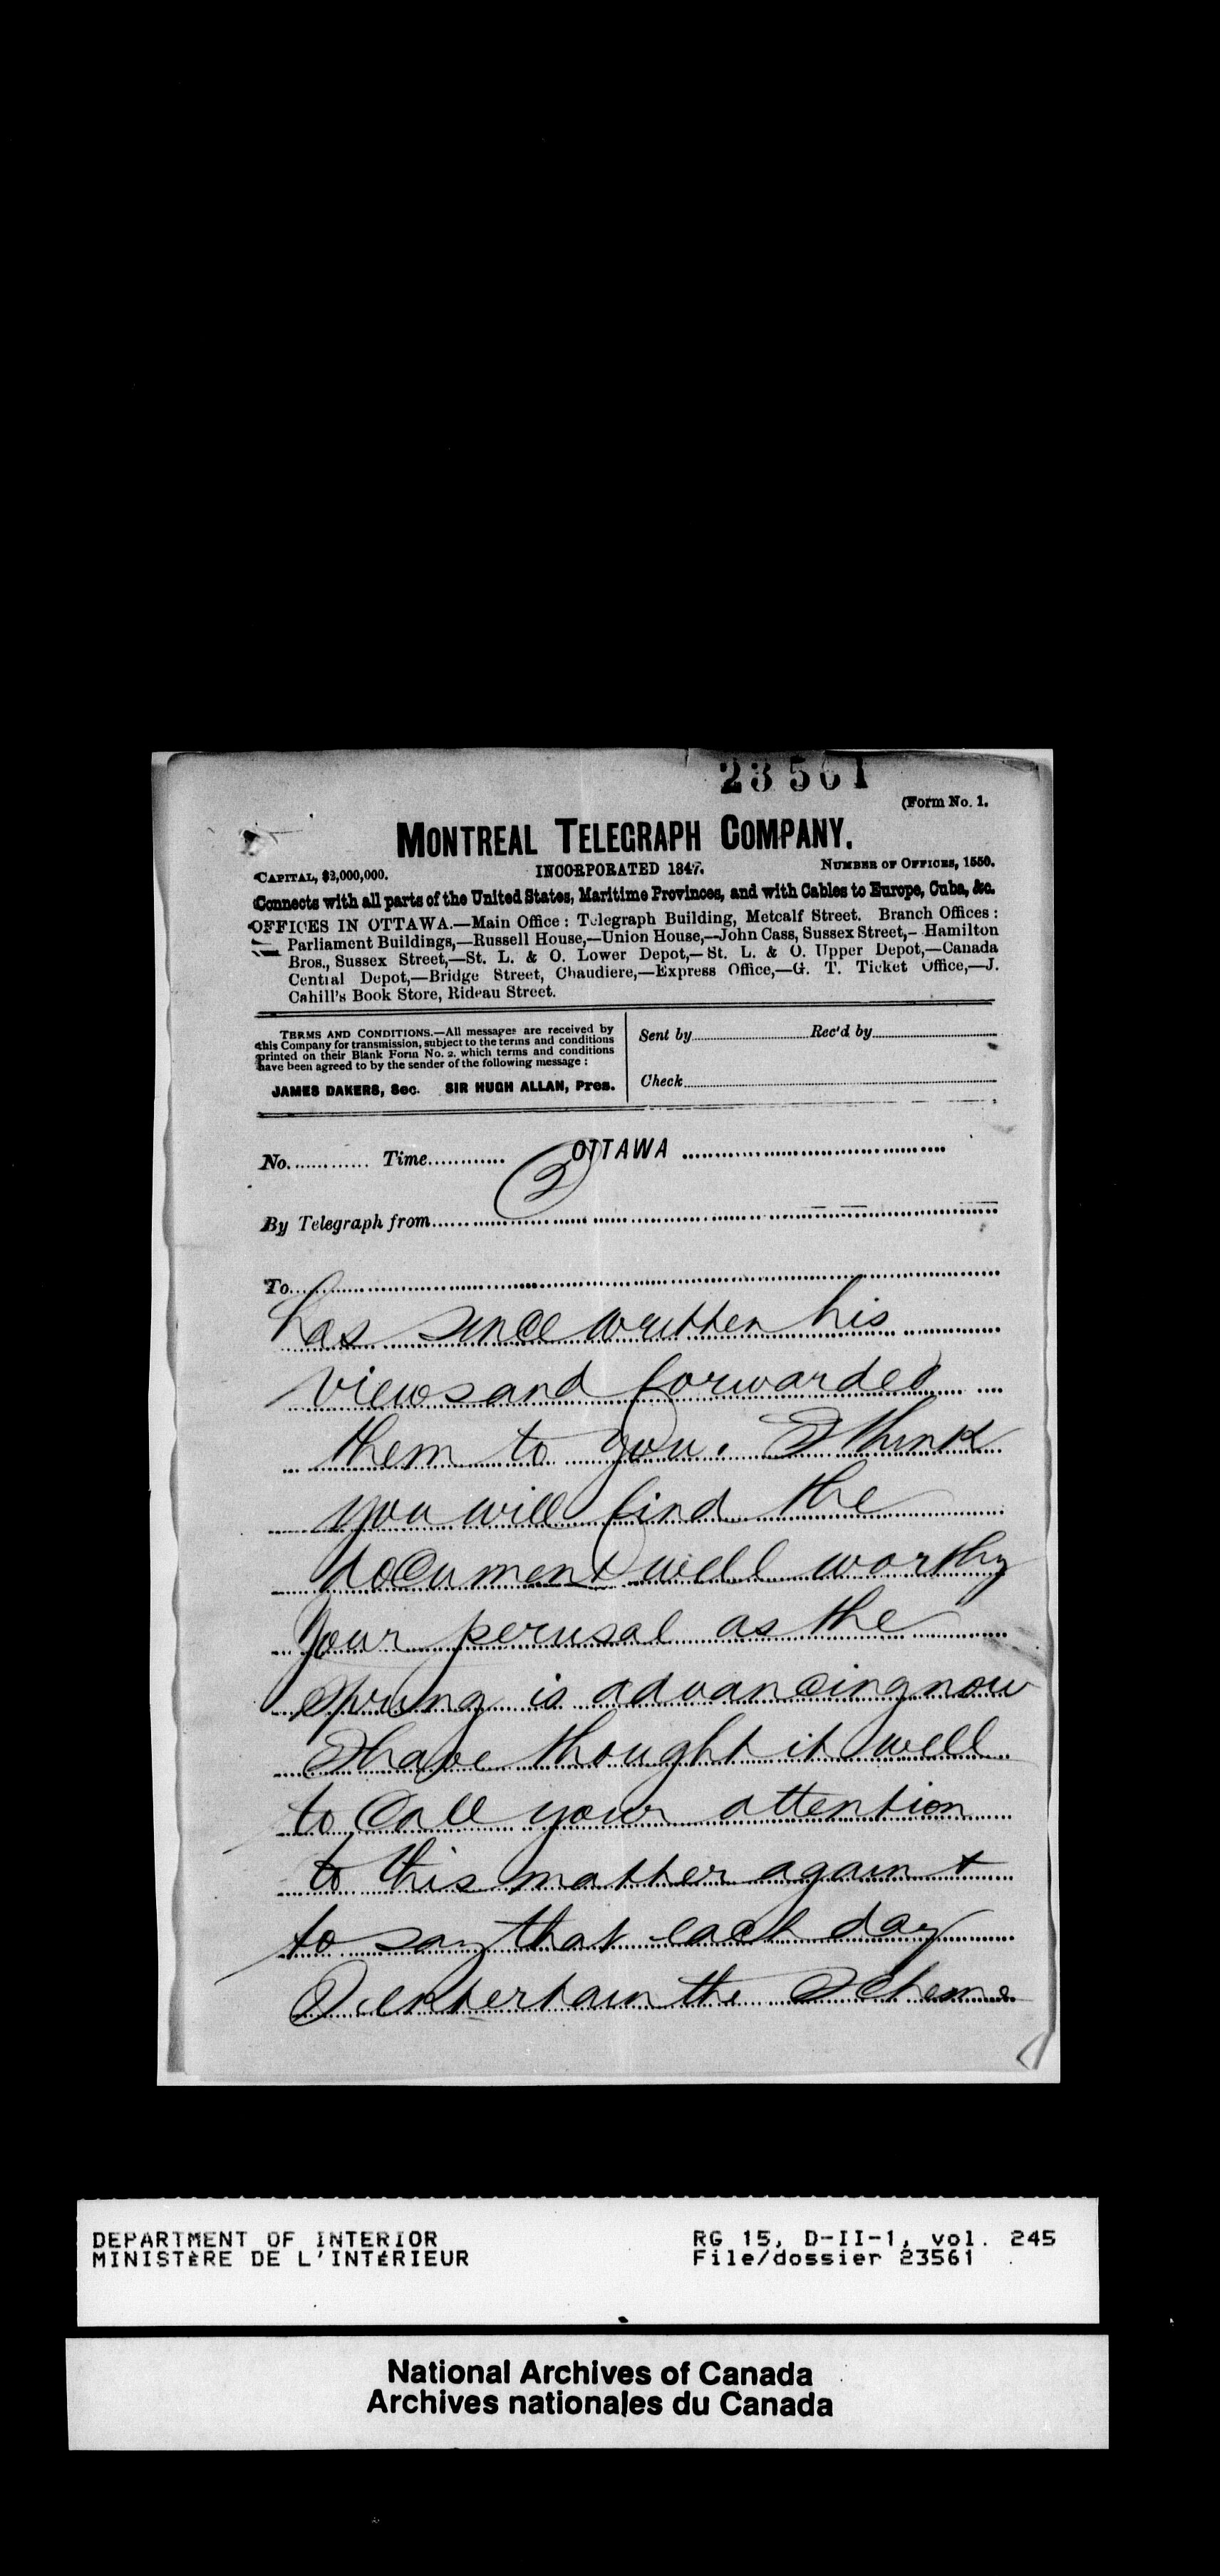 23561
(Form No. 1.
MONTREAL TELEGRAPH COMPANY.
CAPITAL, $3,000,000. INCORPORATED 1847. NUMBER OF OFFICES, 1550.
Connects with all parts of the United States, Maritime Provinces, and with Cables to Europe, Cuba, &c.
OFFICES IN OTTAWA.—Main Office: Telegraph Building, Metcalf Street. Branch Offices:
Parliament Buildings,—Russell House,—Union House,—John Cass, Sussex Street,—Hamilton
Bros., Sussex Street,—St. L. & O. Lower Depot,—St. L. & O. Upper Depot,—Canada
Central Depot,—Bridge Street, Chaudiere,—Express Office,—G. T. Ticket Office,—J.
Cahill's Book Store, Rideau Street.
TERMS AND CONDITIONS.—All messages are received by
this Company for transmission, subject to the terms and conditions
printed on their Blank Form No. 2, which terms and conditions
have been agreed to by the sender of the following message:
JAMES DAKERS, Sec. SIR HUGH ALLAN, Pres.
Sent by Rec'd by
Check
No. Time OTTAWA
(2)
By Telegraph from
To
has since written his
views and forwarded
them to you. I think
you will find the
document well worthy
your perusal as the
spring is advancing now
I have thought it well
to call your attention
to this matter again +
to say that each day
I entertain the scheme
DEPARTMENT OF INTERIOR
MINISTÈRE DE L'INTÉRIEUR
RG 15, D-II-1, vol. 245
File/dossier 23561
National Archives of Canada
Archives nationales du Canada